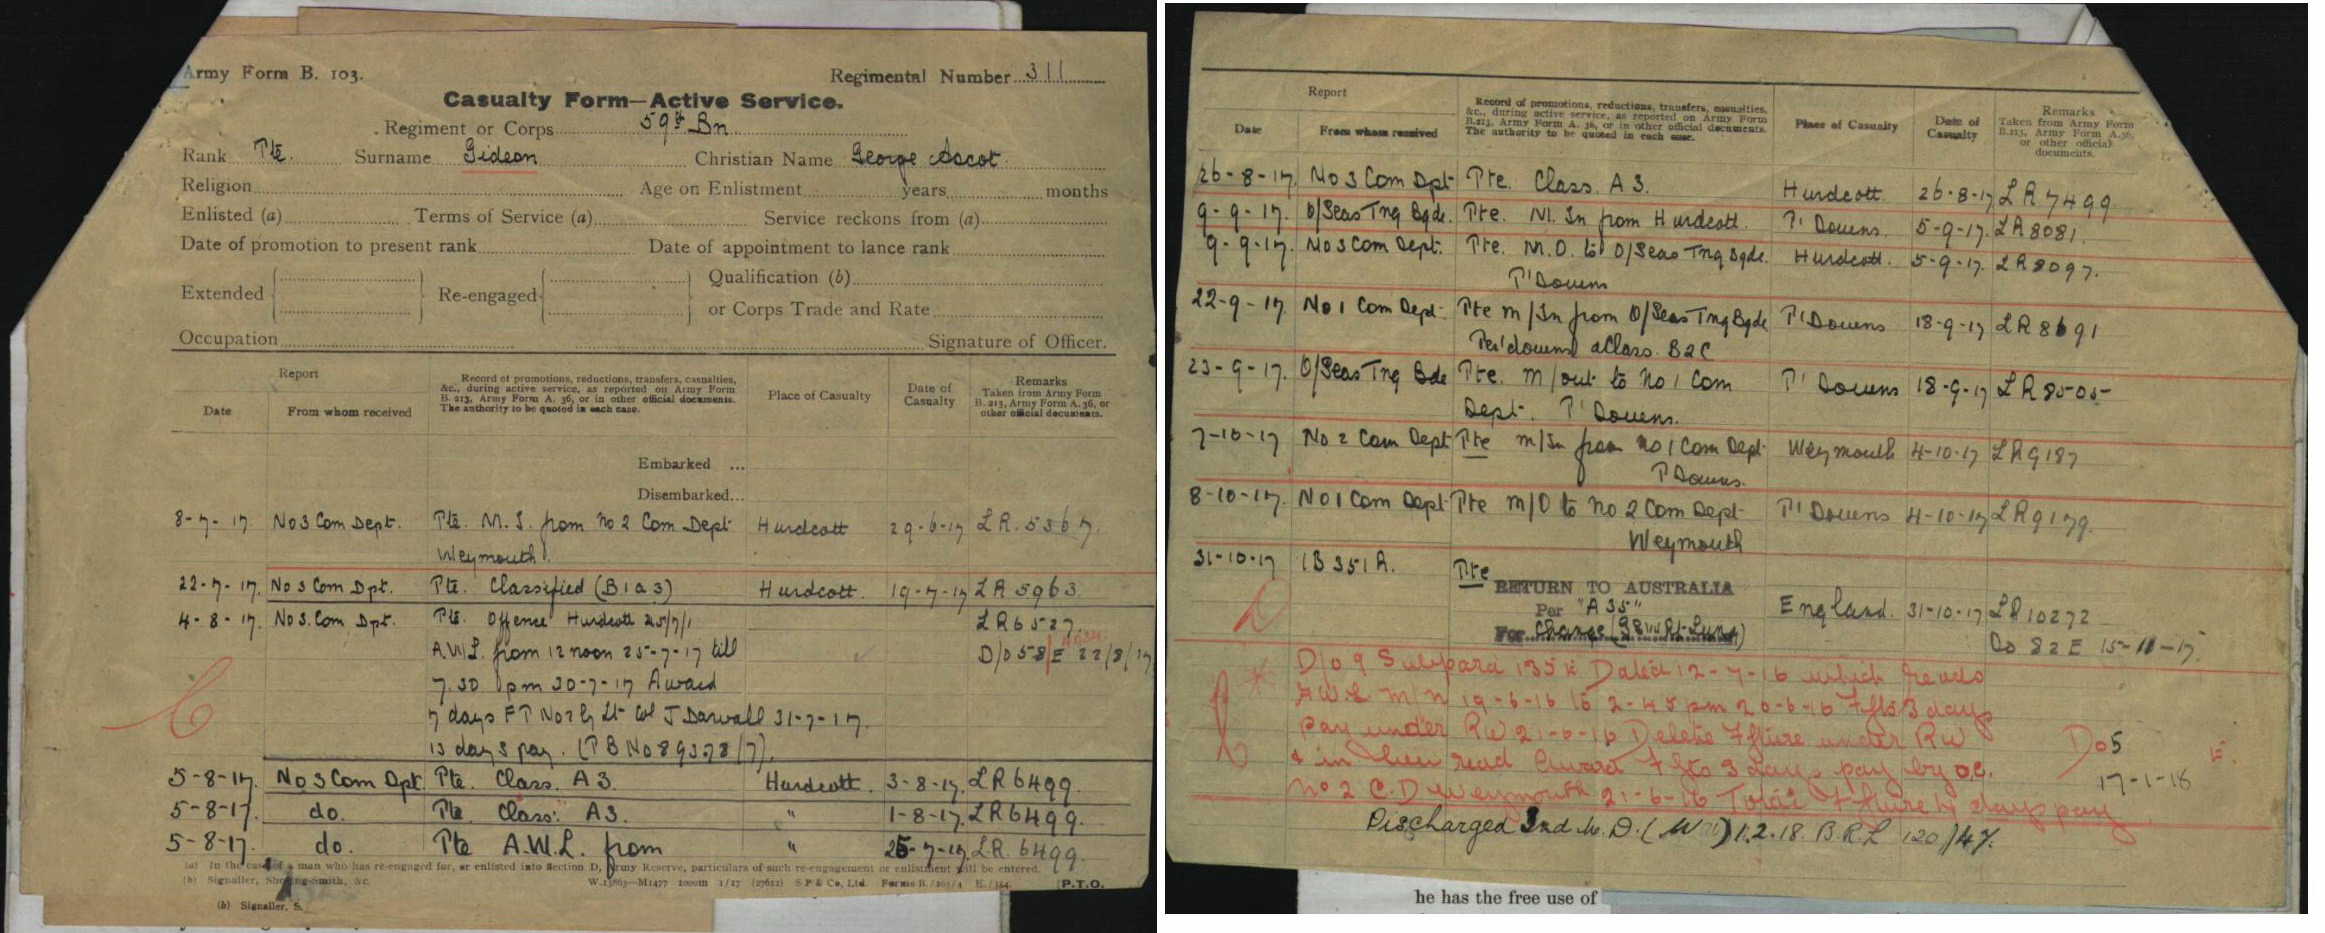 Army Form B. 103.
Regimental Number 311
Casualty Form—Active Service.
Regiment or Corps 59th Bn
Rank Pte. Surname Gideon Christian Name George Ascot
Religion Age on Enlistment years months
Enlisted (a) Terms of Service (a) Service reckons from (a)
Date of promotion to present rank Date of appointment to lance rank
Extended Re-engaged Qualification (b)
or Corps Trade and Rate
Occupation Signature of Officer.
Report
Date
From whom received
Record of promotions, reductions, transfers, casualties,
&c., during active service, as reported on Army Form
B. 213, Army Form A. 36, or in other official documents.
The authority to be quoted in each case.
Place of Casualty
Date of
Casualty
Remarks
Taken from Army Form
B. 213, Army Form A. 36, or
other official documents.
Embarked ...
Disembarked...
8-7-17 No 3 Com Dept. Pte. M. I. from No 2 Com Dept Hurdcott 29-6-17 LR. 5367.
Weymouth
22-7-17. No 3 Com Dpt. Pte. Classified (B1a3) Hurdcott. 19-7-17 LR 5963
4-8-17. No 3. Com Dpt. Pte. Offence Hurdcott 25/7/1 LR 6527.
A.W.L. from 12 noon 25-7-17 till D/O 58/E 22/8/17
7.30 pm 30-7-17 Award
7 days FP No 2 by Lt Col J Darwall 31-7-17.
13 days pay. (PB No 89378/7).
5-8-17. No 3 Com Dpt Pte. Class. A3. Hurdcott. 3-8-17. LR 6499.
5-8-17. do. Pte Class: A3. " 1-8-17. LR 6499.
5-8-17. do. Pte A.W.L. from " 25-7-17. LR. 6499.
(a) In the case of a man who has re-engaged for, or enlisted into Section D, Army Reserve, particulars of such re-engagement or enlistment will be entered.
(b) Signaller, Shoeing-Smith, &c.
W.13863—M1477 1000m 1/17 (27621) S P & Co., Ltd. Forms B./103/4 E./354. [P.T.O.
(b) Signaller, S.
Report
Date
From whom received
Record of promotions, reductions, transfers, casualties,
&c., during active service, as reported on Army Form
B.213, Army Form A. 36, or in other official documents.
The authority to be quoted in each case.
Place of Casualty
Date of
Casualty
Remarks
Taken from Army Form
B.213, Army Form A.36,
or other official
documents.
26-8-17. No 3 Com Dpt Pte. Class. A3. Hurdcott 26-8-17 LR 7499
9-9-17. O/Seas Tng Bgde. Pte. M. In from Hurdcott. P' Downs. 5-9-17. LR 8081.
9-9-17. No 3 Com Dept. Pte. M.O. to O/Seas Tng Bgde. Hurdcott. 5-9-17. LR 8097.
P' Downs
22-9-17. No 1 Com Dept. Pte m/In from O/Seas Tng Bgde P' Downs 18-9-17 LR 8691
Per'downs aClass. B2C
23-9-17. O/Seas Tng Bde Pte. m/out to No 1 Com P' Downs 18-9-17 LR 8505
Dept. P' Downs.
7-10-17 No 2 Com Dept Pte m/In from No 1 Com Dept Weymouth 4-10-17 LR 9187
P Downs.
8-10-17. No 1 Com Dept Pte m/O to No 2 Com Dept P' Downs 4-10-17 LR 9179.
Weymouth
31-10-17 1B 351A. Pte
RETURN TO AUSTRALIA
Per "A 35" England. 31-10-17 LR 10272
For Change (GSW Rt Lung) Do 82 E 15-11-17.
D/o 9 Subpara 135 Dated 12-7-16 which reads
AWL M/N 19-6-16 to 2-45 pm 20-6-16 Ffts 3 days
pay under RW 21-6-16 Delete Ffture under RW
& in lieu read Award Ffts 3 days pay by O.C.
No 2 C.D Weymouth 21-6-16 Total Ffture 4 days pay
Do 5
17-1-18
Discharged 3rd M.D. 1.2.18. B.R.L 120/47.
he has the free use of